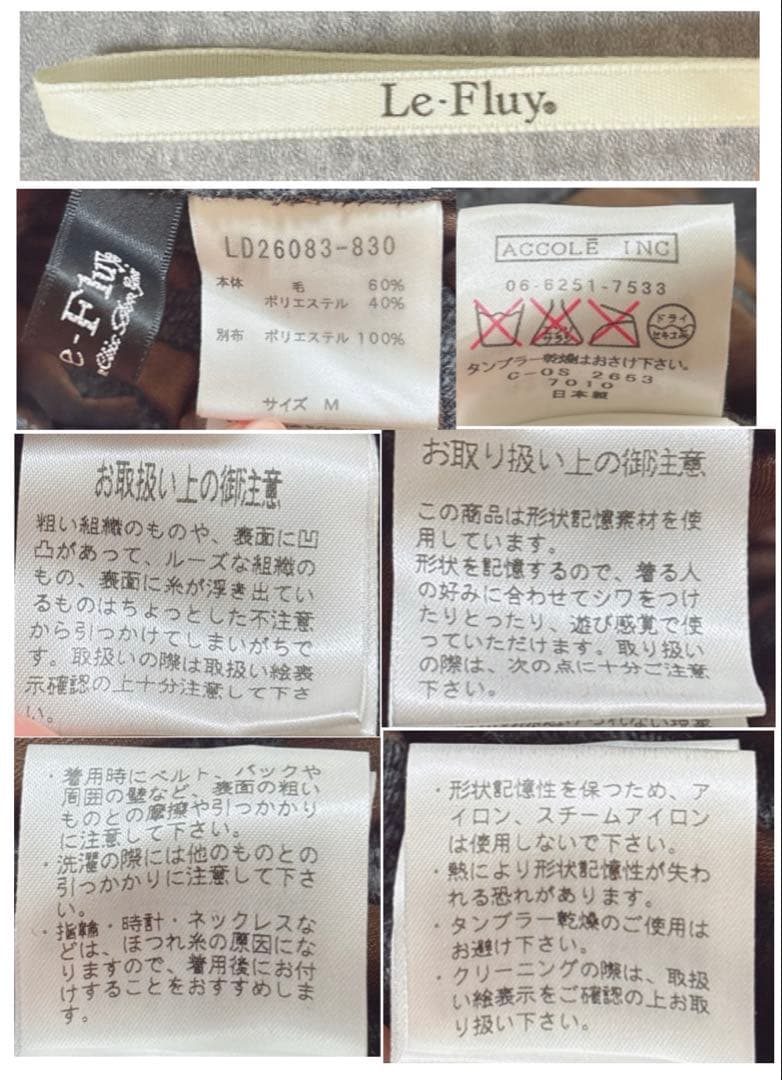 Le-Fluy®
e-Fluy
LD26083-830
本体 毛 60%
ポリエステル 40%
別布 ポリエステル 100%
サイズ M
ACCOLĒ INC
06-6251-7533
エンソ
サラシ
ドライ
セキユ系
タンブラー乾燥はおさけ下さい。
C-0S 2653
7010
日本製
お取扱い上の御注意
粗い組織のものや、表面に凹
凸があって、ルーズな組織の
もの、表面に糸が浮き出てい
るものはちょっとした不注意
から引っかけてしまいがちで
す。取扱いの際は取扱い絵表
示確認の上十分注意して下さ
い。
お取り扱い上の御注意
この商品は形状記憶素材を使
用しています。
形状を記憶するので、着る人
の好みに合わせてシワをつけ
たりとったり、遊び感覚で使
っていただけます。取り扱い
の際は、次の点に十分ご注意
下さい。
・着用時にベルト、バックや
周囲の壁など、表面の粗い
ものとの摩擦や引っかかり
に注意して下さい。
・洗濯の際には他のものとの
引っかかりに注意して下さ
い。
・指輪・時計・ネックレスな
どは、ほつれ糸の原因にな
りますので、着用後にお付
けすることをおすすめしま
す。
・形状記憶性を保つため、ア
イロン、スチームアイロン
は使用しないで下さい。
・熱により形状記憶性が失わ
れる恐れがあります。
・タンブラー乾燥のご使用は
お避け下さい。
・クリーニングの際は、取扱
い絵表示をご確認の上お取
り扱い下さい。